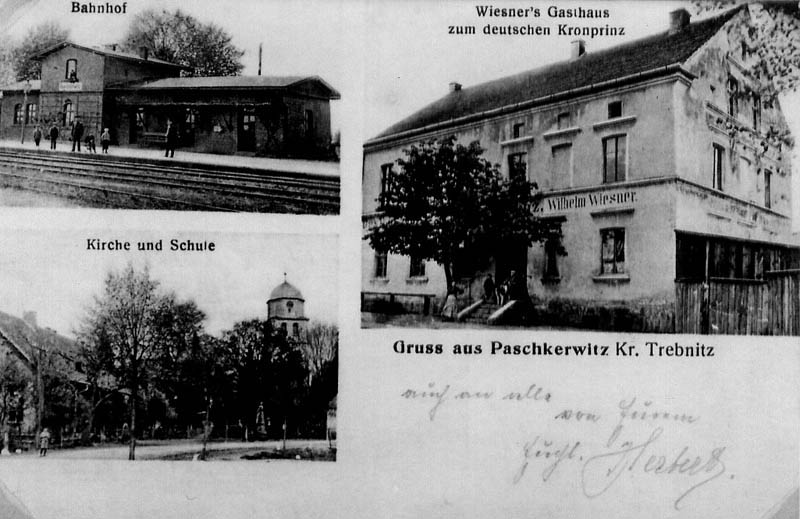 Bahnhof
Wiesner's Gasthaus
zum deutschen Kronprinz
Wilhelm Wiesner.
Kirche und Schule
Gruss aus Paschkerwitz Kr. Trebnitz
auch an alle
von Eurem
Herbert.